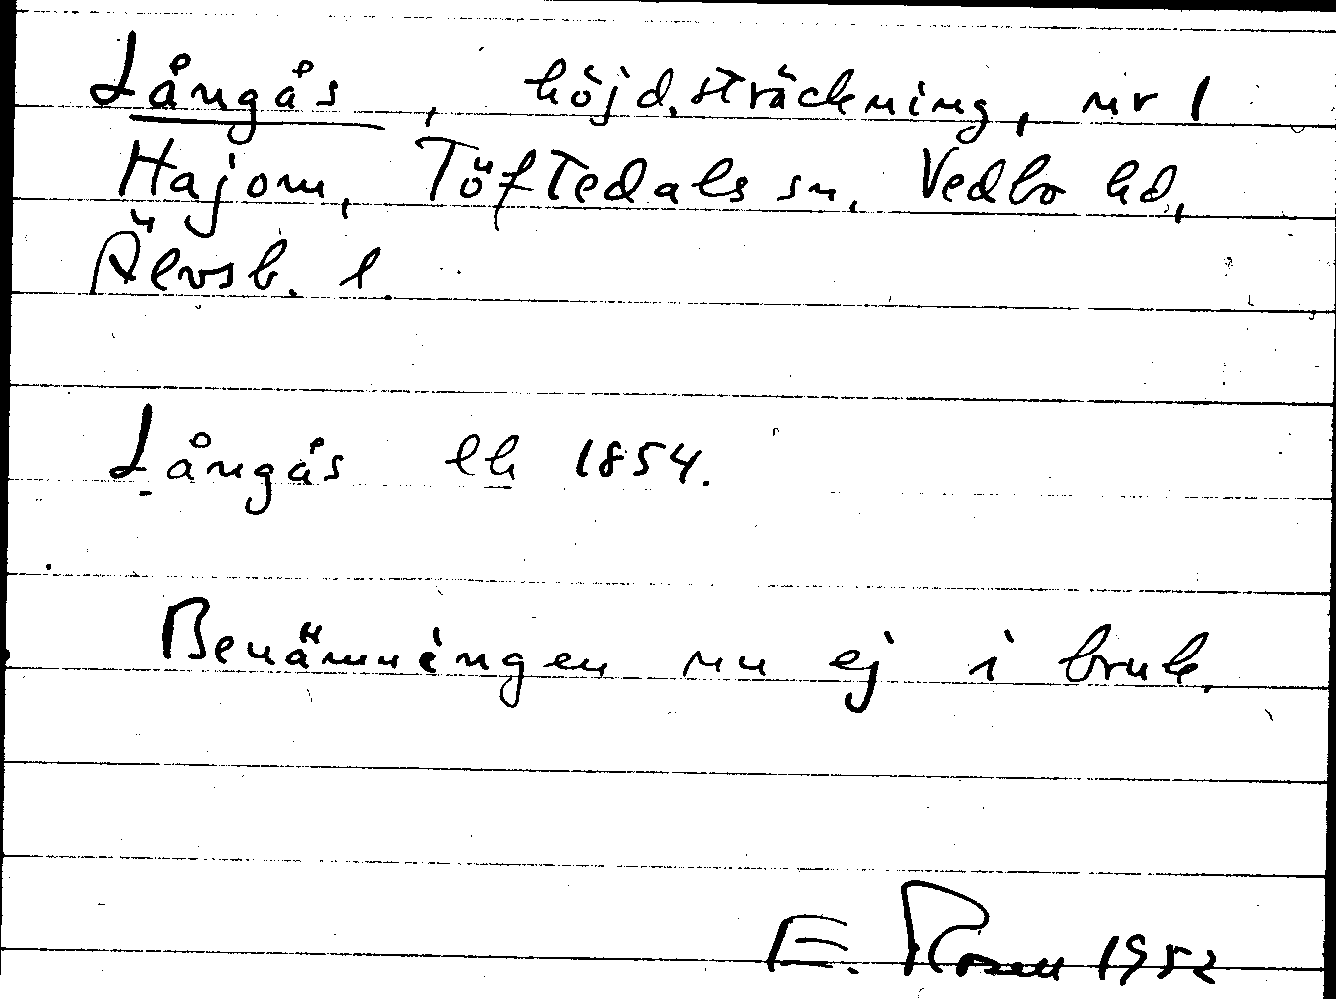 Långås, höjdsträckning, nr 1
Hajom, Töftedals sn, Vedbo hd,
Älvsb. l.
Långås lh 1854.
Benämningen nu ej i bruk.
E. Rosell 1952